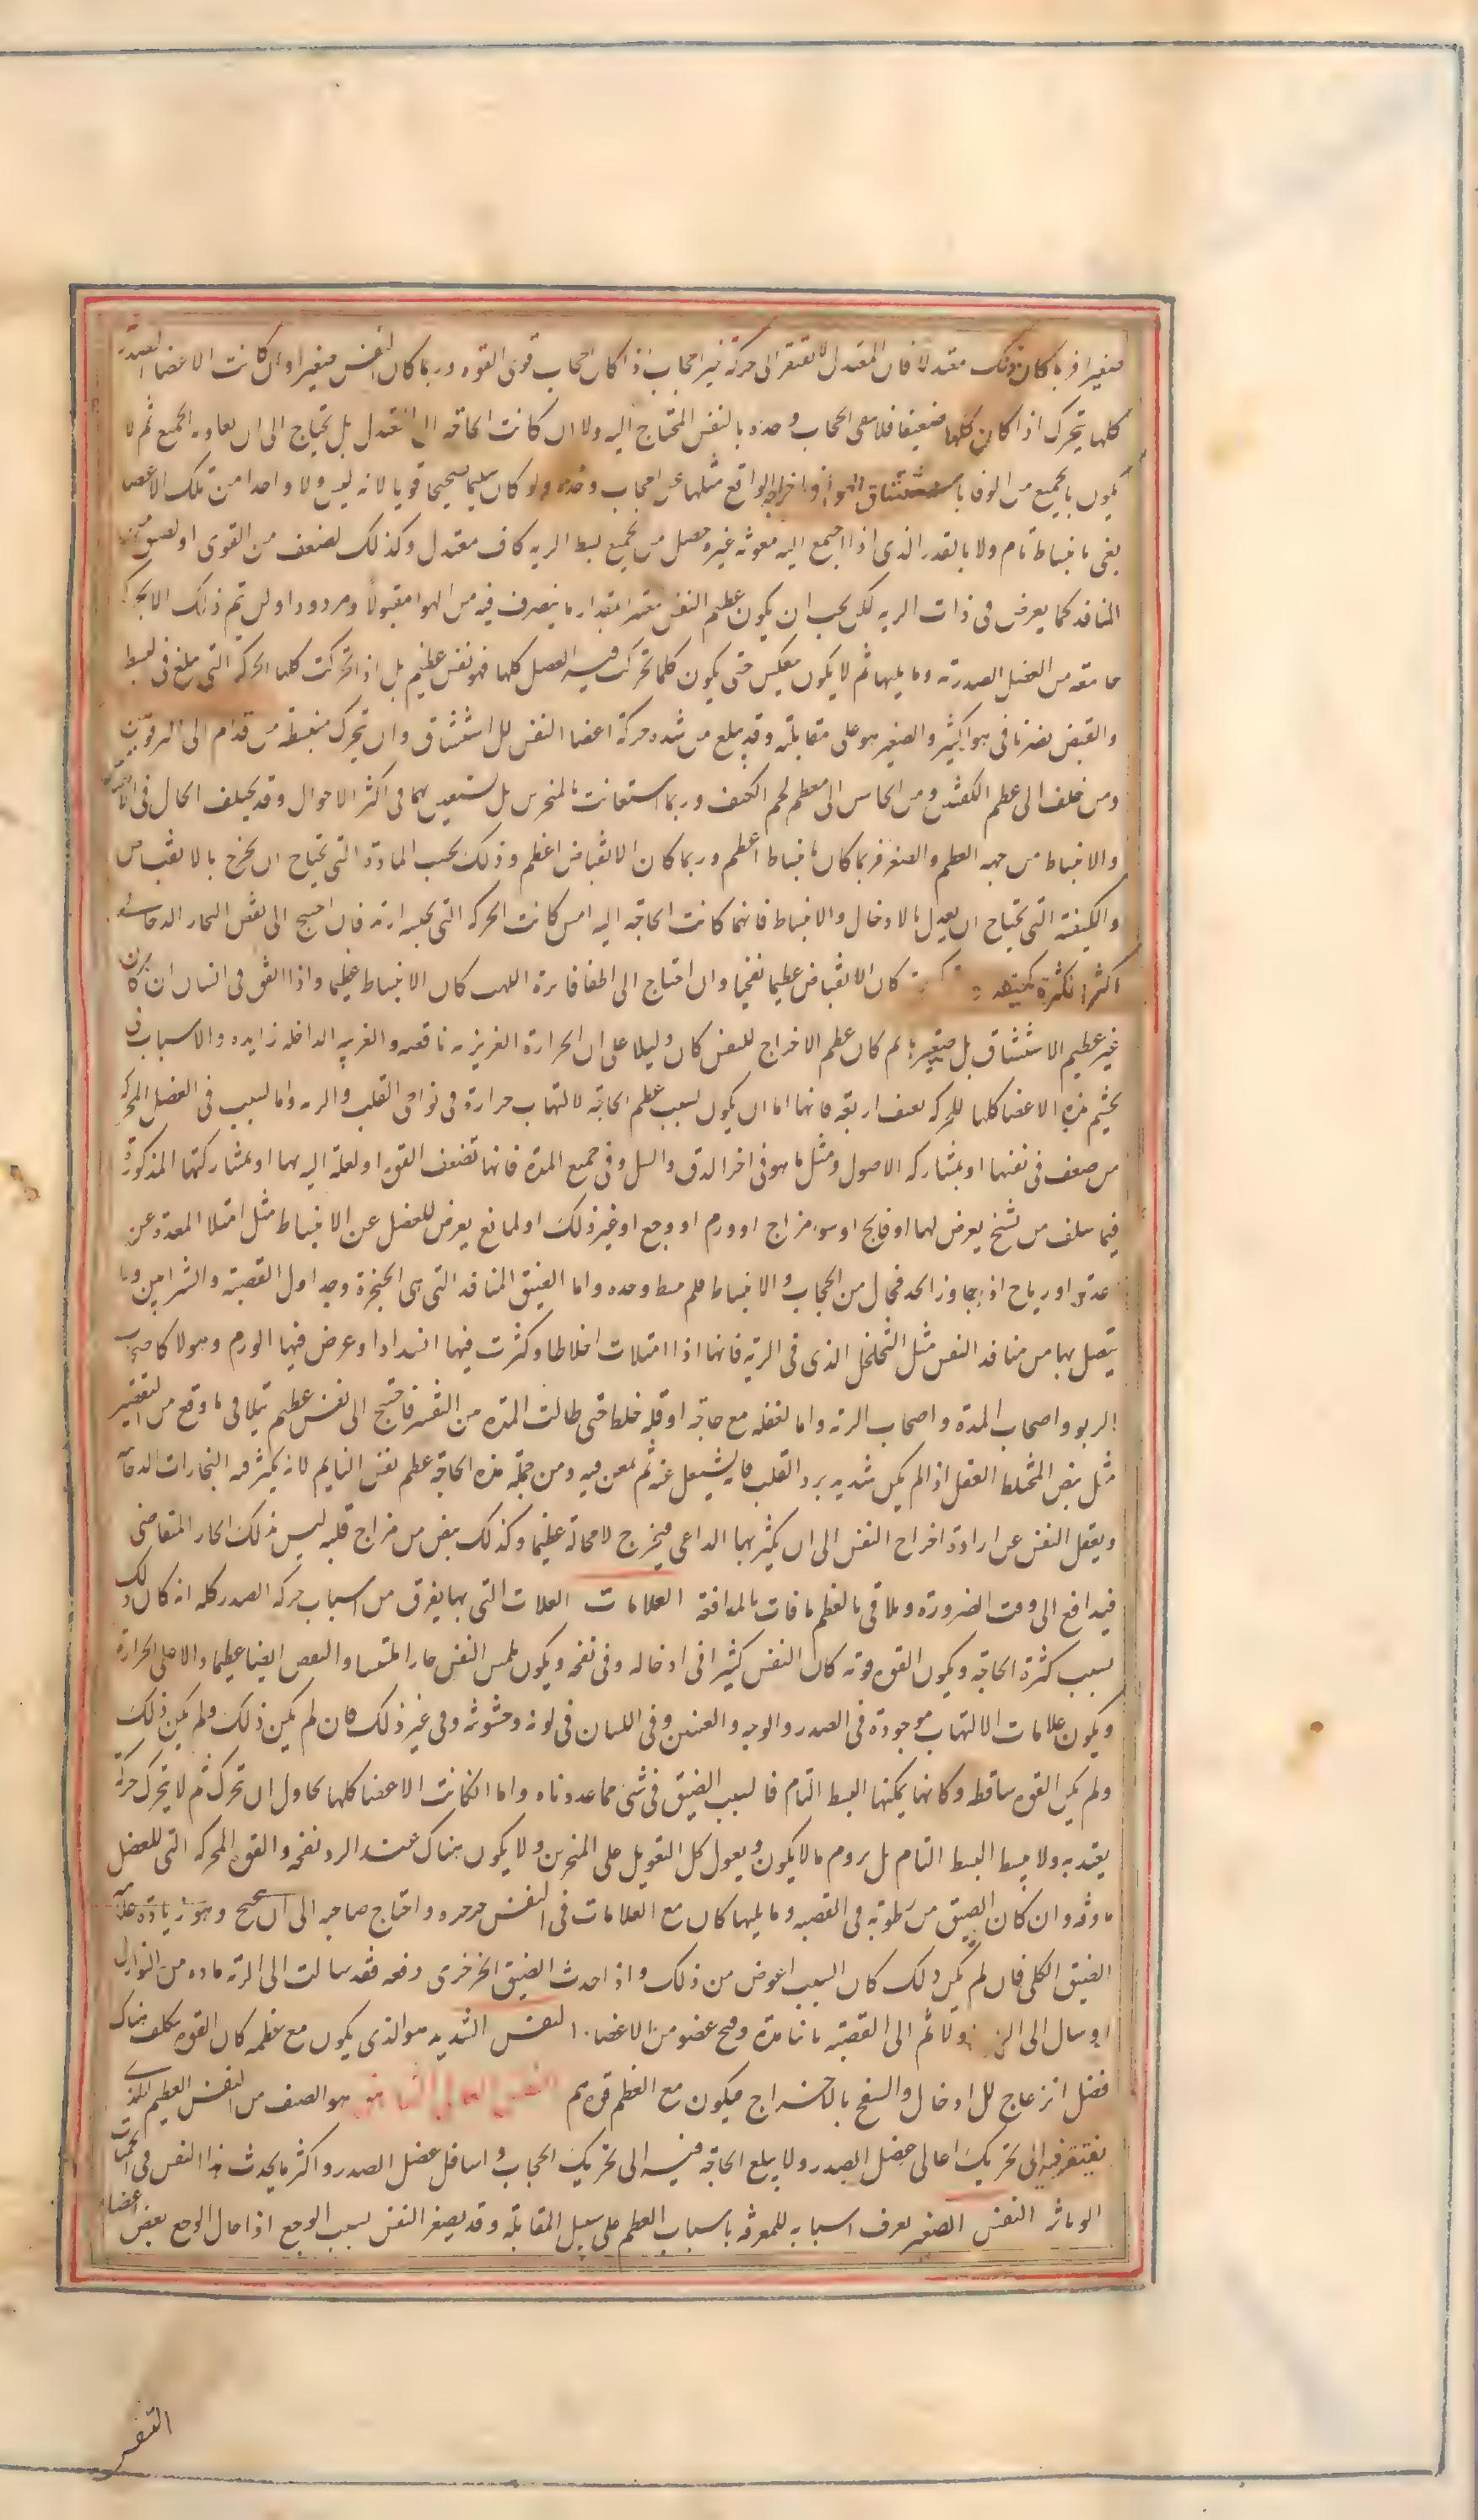 صغيرا فربما كان ذلك معتدلا فان المعتدل لا يفتقر الى حركة غير الحجاب اذا كان الحجاب قوى القوه وربما كان النفس صغيرا وان كانت الاعضا الصدرية
كلها يتحرك اذا كان كلها ضعيفا فلا يفى الحجاب وحده بالنفس المحتاج اليه ولا ان كانت الحاجه الى المعتدل بل يحتاج الى ان يعاونه الجميع ثم لا
يكون بالجميع من الوفا باستنشاق الهوا واخراجه الواقع مثلها عن الحجاب وحده ولو كان سليما صحيحا قويا لانه ليس ولا واحدا من تلك الاعضا
يفى بانبساط تام ولا بالقدر الذى اذا اجتمع اليه معونه غيره حصل من الجميع بسط الريه كاف معتدل وكذلك لضعف من القوى او لضيق من
المنافذ كما يعرض فى ذات الريه لكن يجب ان يكون عظيم النفس معتبرا بمقدار ما يتصرف فيه من الهوا مقبولا ومردودا ولن يتم ذلك الا بحركة
جامعه من العضل الصدريه وما يليها ثم لا يكون معكس حتى يكون كلما تحركت فيه العضل كلها فهو نفس عظيم بل اذا تحركت كلها الحركه التى تبلغ فى البسط
والقبض تصرفا فى هوا كثير والصغير هو على مقابلته وقد يبلغ من شده حركة اعضا النفس للاستنشاق وان يتحرك منبسطه من قدام الى الترقوتين
ومن خلف الى عظم الكتفين ومن الجانبين الى معظم لحم الكتف وربما استعانت بالمنخرين بل تستعين بهما فى اكثر الاحوال وقد يختلف الحال فى الانقباض
والانبساط من جهه العظم والصغر فربما كان الانبساط اعظم وربما كان الانقباض اعظم وذلك بحسب المادة التى يحتاج ان يخرج بالانقباض
والكيفية التى يحتاج ان يعدل بالادخال والانبساط فانهما كانت الحاجه اليه امس كانت الحركه التى بحسبه ازيد فان احتيج الى نفض البخار الدخانى
اكثر لكثرة كميته كان الانقباض عظيما نفخيا وان احتاج الى اطفا فايرة اللهب كان الانبساط عظيما واذا اتفق فى انسان ان كان
غير عظيم الاستنشاق بل صغيره ثم كان عظم الاخراج للنفس كان دليلا على ان الحرارة الغريزيه ناقصه والغريبه الداخله زايده والاسباب فى
تجشم هذه الاعضا كلها للحركه بعنف اربعه فانها اما ان يكون لسبب عظم الحاجه لالتهاب حرارة فى نواحى القلب والريه واما لسبب فى العضل المحركه
من ضعف فى نفسها او بمشاركه الاصول ومثل ما هو فى اخر الدق والسل وفى جميع المدة فانها تضعف القوه او لعله اليه بها او بمشاركتها المذكورة
فيما سلف من تشنج يعرض لها او فالج او سوء مزاج او ورم او وجع او غير ذلك او لمانع يعرض للعضل عن الانبساط مثل امتلا المعدة عن
غذا او رياح اذا جاوز الحد فحال بين الحجاب والانبساط فلم يبسط وحده واما لضيق المنافذ التى هى الحنجرة وجداول القصبة والشرايين وما
يتصل بها من منافذ النفس مثل التخلخل الذى فى الريه فانها اذا امتلات اخلاطا وكثرت فيها انسدادا وعرض فيها الورم وهولا كاصحاب
الربو واصحاب المدة واصحاب الريه واما لغفله مع حاجه او قله خلط حتى طالت المده بين التنفس فاحتيج الى نفس عظيم يتلافى ما وقع من التقصير
مثل نفس المختلط العقل اذا لم يكن شديد برد القلب فانه يشتغل عنه ثم يمعن فيه ومن جملة هذه الحاجه عظم نفس النايم لانه يكثر فيه البخارات الدخانية
ويغفل النفس عن ارادة اخراج النفس الى ان يكثر بها الداعى فيخرج لا محالة عظيما وكذلك نفس من مزاج قلبه ليس بذلك الحار المتقاضى
فيدافع الى وقت الضرورة ويتلاقى بالعظم ما فات بالمدافعة العلامات العلامات التى بها يفرق من اسباب حركه الصدر كله انه كان ذلك
بسبب كثرة الحاجه ويكون القوه قويه كان النفس كثيرا فى ادخاله وفى نفخه ويكون ملمس النفس حار الملتهبا والنبض ايضا عظيما دالا على الحرارة
ويكون علامات الالتهاب موجودة فى الصدر والوجه والعينين وفى اللسان فى لونه وخشونته وفى غير ذلك فان لم يكن ذلك ولم يكن ذلك
ولم يكن القوه ساقطه وكانها يمكنها البسط التام فالسبب الضيق فى شئ مما عددناه واما اذا كانت الاعضا كلها تحاول ان تتحرك ثم لا يتحرك حركة
يعتد بها ولا يبسط البسط التام بل يروم ما لا يكون ويعول كل التعويل على المنخرين ولا يكون هناك عند الرد نفخه والقوه المحركه التى للعضل
ماوفه وان كان الضيق من رطوبه فى القصبه وما يليها كان مع العلامات فى النفس خرخره واحتاج صاحبه الى ان يتنحنح وهو زيادة علامة
الضيق الكلى فان لم يكن ذلك كان السبب اغوض من ذلك واذا حدث الضيق الخرخرى دفعه فقد سالت الى الريه ماده من النوازل
او سال الى الريه اولا ثم الى القصبة ثانيا مدة وقيح عضو من الاعضا. النفس الشديد هو الذى يكون مع عظمه كان القوه تكلف هناك
فضل انزعاج للادخال والنفخ بالاخراج فيكون مع العظم قوه هم النفس العالى الشاهق هو الصنف من النفس العظيم الذى
يفتقر فيه الى تحريك اعالى عضل الصدر ولا يبلغ الحاجه فيه الى تحريك الحجاب واسافل عضل الصدر واكثر ما يحدث هذا النفس فى الحميات
الوبائيه النفس الصغير يعرف اسبابه للمعرفه باسباب العظم على سبيل المقابلة وقد يصغر النفس بسبب الوجع اذا حال الوجع بعض اعضا
التنفس